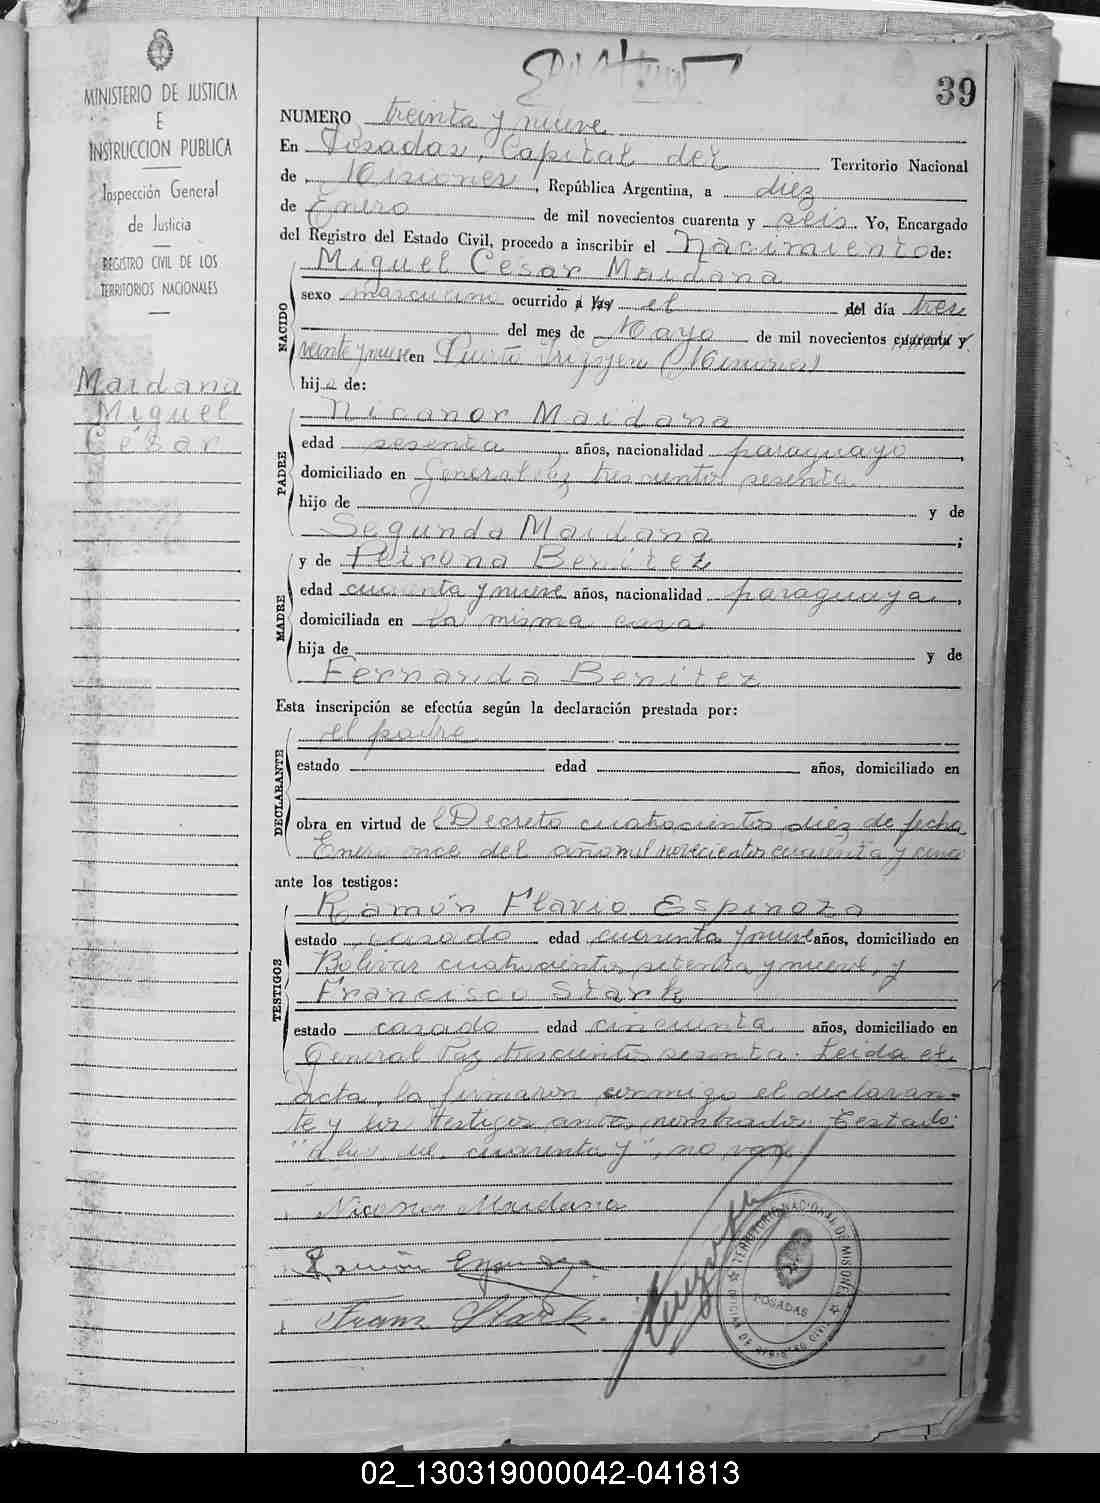 39
MINISTERIO DE JUSTICIA
E
INSTRUCCION PUBLICA
Inspección General
de Justicia
REGISTRO CIVIL DE LOS
TERRITORIOS NACIONALES
Maidana
Miguel
César
NUMERO treinta y nueve
En Posadas, Capital del Territorio Nacional
de Misiones, República Argentina, a diez
de Enero de mil novecientos cuarenta y seis. Yo, Encargado
del Registro del Estado Civil, procedo a inscribir el Nacimiento de:
NACIDO
Miguel César Maidana
sexo masculino ocurrido a las el del día tres
del mes de Mayo de mil novecientos cuarenta y
veinte y nueve en Puerto Irigoyen (Misiones)
hijo de:
PADRE
Nicanor Maidana
edad sesenta años, nacionalidad paraguayo,
domiciliado en General Paz trescientos sesenta
hijo de y de
Segunda Maidana;
MADRE
y de Petrona Benitez
edad cuarenta y nueve años, nacionalidad paraguaya,
domiciliada en la misma casa
hija de y de
Fernanda Benitez
Esta inscripción se efectúa según la declaración prestada por:
DECLARANTE
el padre
estado edad años, domiciliado en
obra en virtud del Decreto cuatrocientos diez de fecha
Enero once del año mil novecientos cuarenta y cinco
ante los testigos:
TESTIGOS
Ramón Flavio Espinoza
estado casado edad cuarenta y nueve años, domiciliado en
Bolivar cuatrocientos setenta y nueve, y
Francisco Stark
estado casado edad cincuenta años, domiciliado en
General Paz trescientos sesenta. Leida el
acta, la firmaron conmigo el declaran-
te y los testigos antes nombrados. Testado:
"a las, del, cuarenta y", no vale.
Nicanor Maidana
Ramón Espinoza
Franz Stark
TERRITORIO NACIONAL DE MISIONES
POSADAS
OFICINA DE REGISTRO CIVIL
02_130319000042-041813